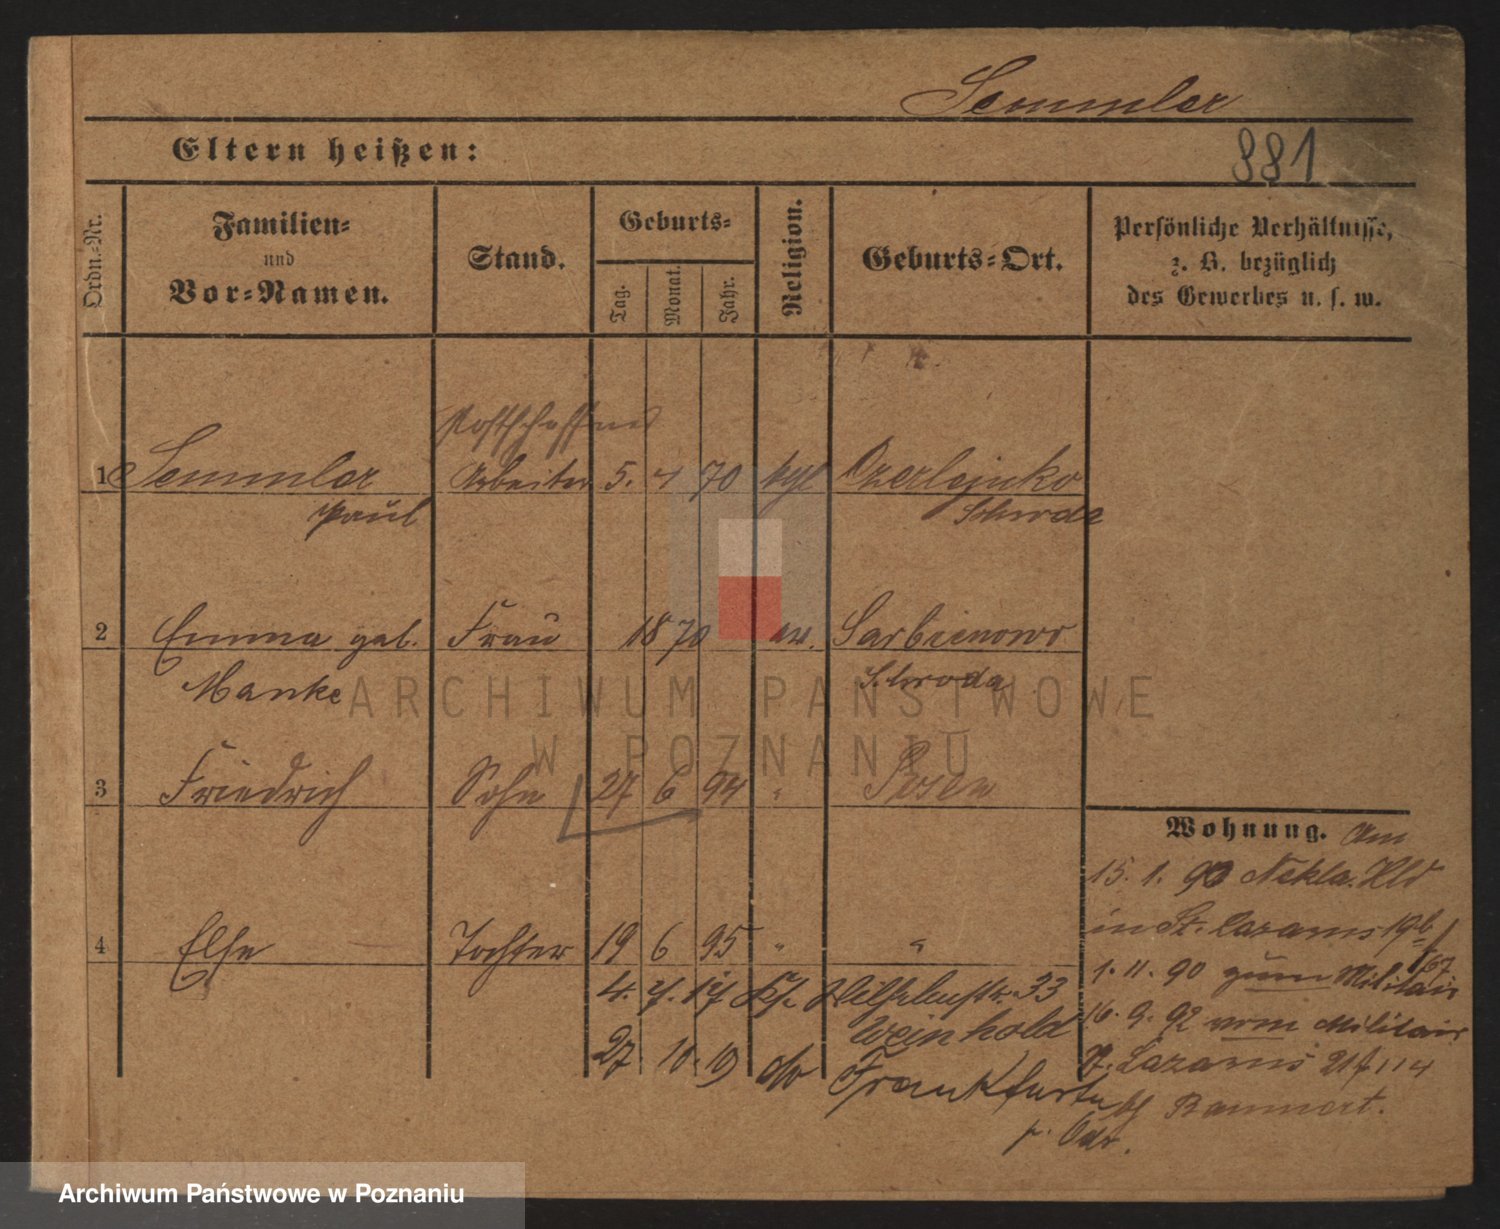 Semmler
Eltern heißen:
881
Ordn.-Nr.
Familien-
und
Vor-Namen.
Stand.
Geburts-
Tag.
Monat.
Jahr.
Religion.
Geburts-Ort.
Persönliche Verhältnisse,
z. B. bezüglich
des Gewerbes u. s. w.
Postschaffner
1 Semmler Arbeiter 5. 4 70 kgl
Paul
Schroda
2 Emma geb. Frau 1870 ev. Sarbinowo
Manke Schroda
3 Friedrich Sohn 27 6 94 " Posen
4 Else Tochter 19 6 95 " "
4. 7. 17 Wilhelmstr. 33
Weinhold
27. 10. 19 do Frankfurt
a. Odr.
Wohnung. Am
15. 1. 90 Nekla. Hld
in St. Lazarus 19b
1. 11. 90 zum Militair
16. 9. 92 vom Militair
St. Lazarus 114
bei Bammert.
ARCHIWUM PAŃSTWOWE
W POZNANIU
Archiwum Państwowe w Poznaniu